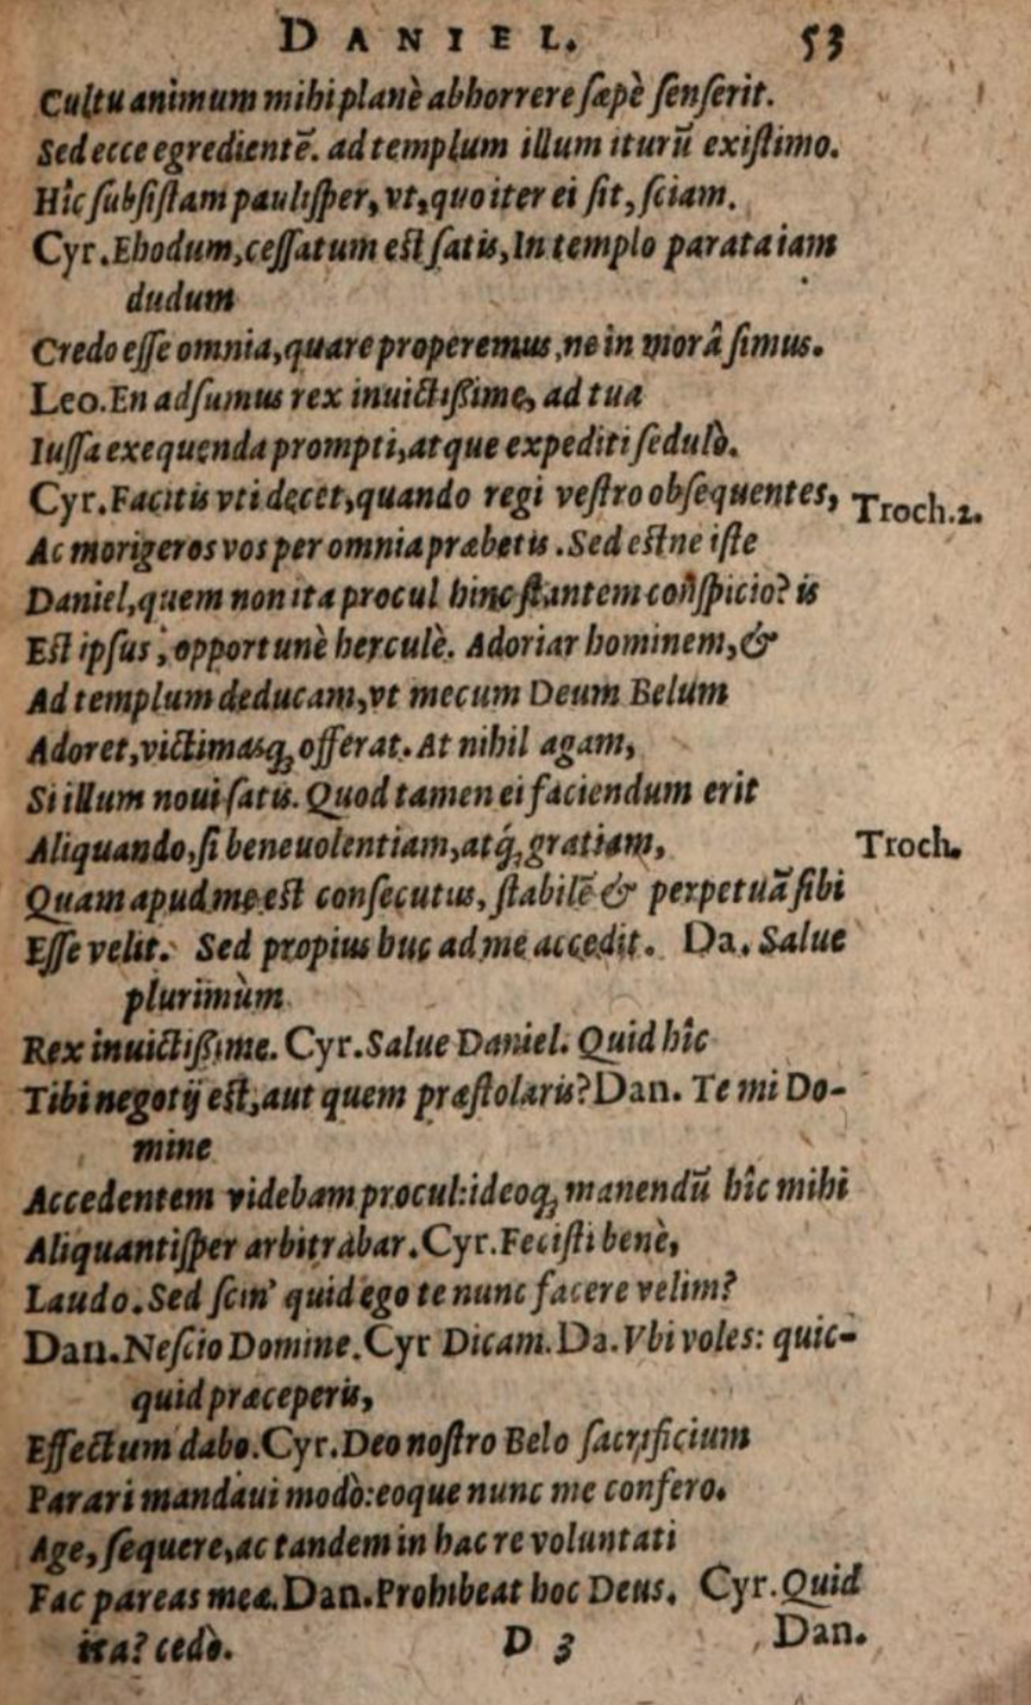 DANIEL. 53
Cultu animum mihi planè abhorrere sæpè senserit.
Sed ecce egrediente᷉. ad templum illum iturũ existimo.
Hîc subsistam paulisper, vt, quo iter ei sit, sciam.
Cyr. Ehodum, cessatum est satis, In templo parata iam
dudum
Credo esse omnia, quare properemus, ne in morâ simus.
Leo. En adsumus rex inuictißime, ad tua
Iussa exequenda prompti, atque expediti sedulò.
Cyr. Facitis vti decet, quando regi vestro obsequentes, Troch. 2.
Ac morigeros vos per omnia præbetis. Sed estne iste
Daniel, quem non ita procul hinc stantem conspicio? is
Est ipsus, opportunè herculè. Adoriar hominem, &
Ad templum deducam, vt mecum Deum Belum
Adoret, victimasq; offerat. At nihil agam,
Si illum noui satis. Quod tamen ei faciendum erit
Aliquando, si beneuolentiam, atq́; gratiam, Troch.
Quam apud me est consecutus, stabilẽ & perpetuã sibi
Esse velit. Sed propius huc ad me accedit. Da. Salue
plurimùm
Rex inuictißime. Cyr. Salue Daniel. Quid hîc
Tibi negotij est, aut quem præstolaris? Dan. Te mi Do-
mine
Accedentem videbam procul: ideoq; manendũ hîc mihi
Aliquantisper arbitrabar. Cyr. Fecisti benè,
Laudo. Sed scin' quid ego te nunc facere velim?
Dan. Nescio Domine. Cyr Dicam. Da. Vbi voles: quic-
quid præceperis,
Effectum dabo. Cyr. Deo nostro Belo sacrificium
Parari mandaui modò: eoque nunc me confero.
Age, sequere, ac tandem in hac re voluntati
Fac pareas meæ. Dan. Prohibeat hoc Deus. Cyr. Quid
ita? cedò. D 3 Dan.